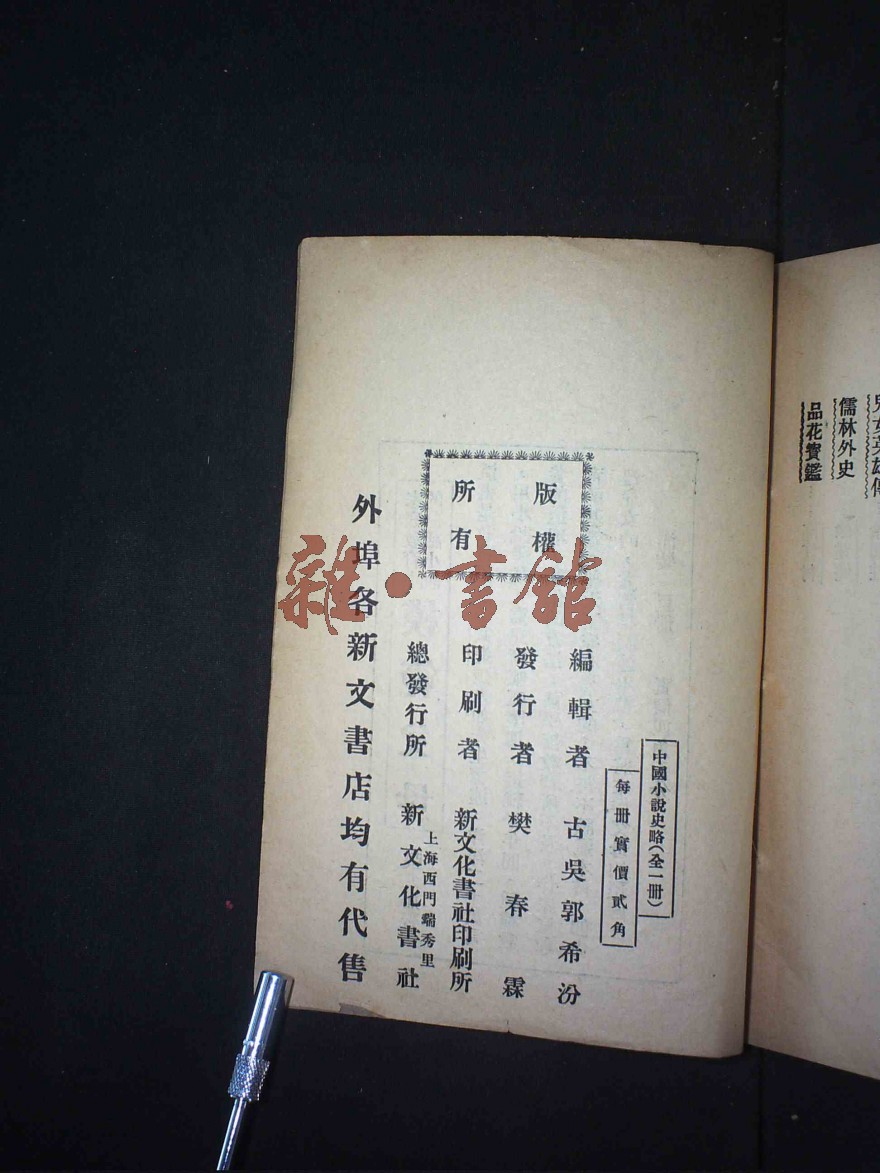 兒女英雄傳
儒林外史
品花寶鑑
中國小說史略(全一冊)
每冊實價貳角
版權
所有
編輯者 古吳郭希汾
發行者 樊春霖
印刷者 新文化書社印刷所
上海西門瑞秀里
總發行所 新文化書社
外埠各新文書店均有代售
雜·書館